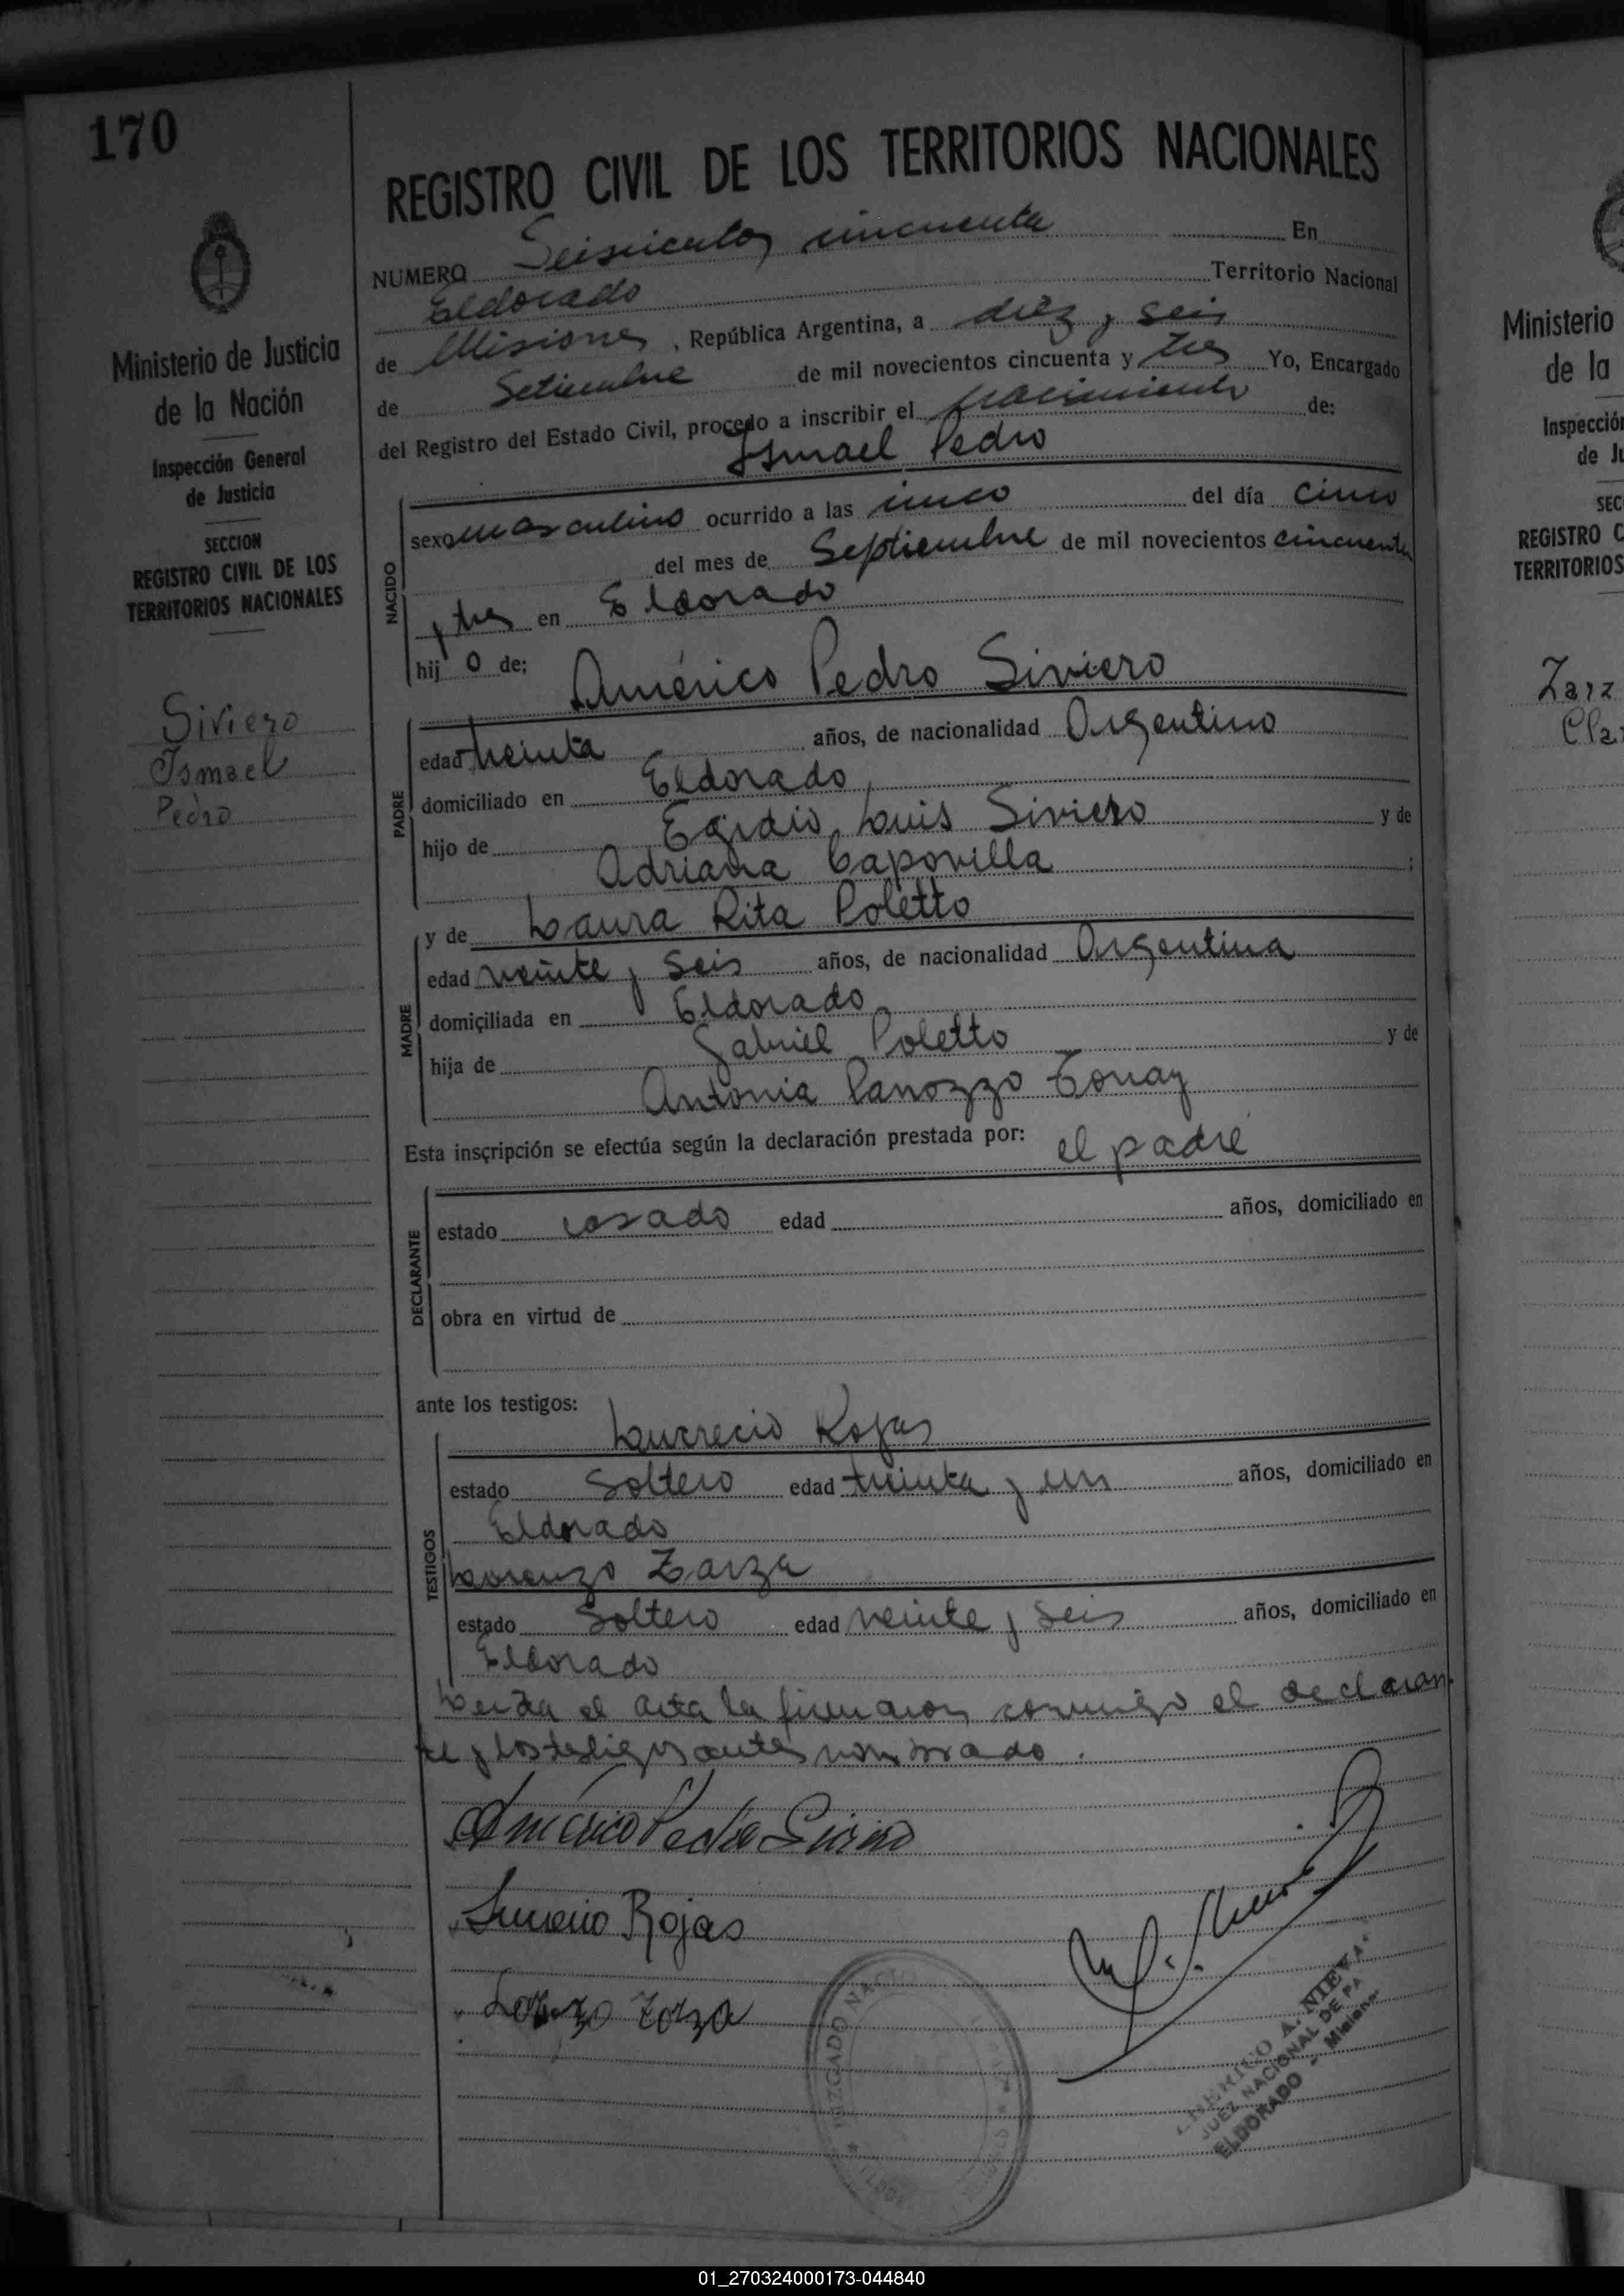 170
REGISTRO CIVIL DE LOS TERRITORIOS NACIONALES
NUMERO Seiscientos cincuenta En
Eldorado Territorio Nacional
de Misiones, República Argentina, a diez y seis
de Setiembre de mil novecientos cincuenta y tres Yo, Encargado
del Registro del Estado Civil, procedo a inscribir el nacimiento de:
Ismael Pedro
NACIDO
sexo masculino ocurrido a las cinco del día cinco
del mes de Septiembre de mil novecientos cincuenta
y tres en Eldorado
hijo de;
Américo Pedro Siviero
PADRE
edad treinta años, de nacionalidad Argentino
domiciliado en Eldorado
hijo de Egidio Luis Siviero y de
Adriana Caporilla ;
y de Laura Rita Poletto
MADRE
edad veinte y seis años, de nacionalidad Argentina
domiciliada en Eldorado
hija de Gabriel Poletto y de
Antonia Panozzo
Esta inscripción se efectúa según la declaración prestada por: el padre
DECLARANTE
estado casado edad años, domiciliado en
obra en virtud de
ante los testigos:
Rojas
TESTIGOS
estado Soltero edad treinta y un años, domiciliado en
Eldorado
Lorenzo Zarza
estado Soltero edad veinte y seis años, domiciliado en
Eldorado
Leida el acta la firmaron conmigo el declaran
te y los testigos antes nombrado.
Américo Pedro Siviero
Rojas
Lorenzo Zarza
JUZGADO NAC
A. NIEVA
JUEZ NACIONAL DE PA
ELDORADO - Misiones
Ministerio de Justicia
de la Nación
Inspección General
de Justicia
SECCION
REGISTRO CIVIL DE LOS
TERRITORIOS NACIONALES
Siviero
Ismael
Pedro
Ministerio
de la
Inspección
de Ju
SEC
REGISTRO C
TERRITORIOS
Zarz
Cla
01_270324000173-044840